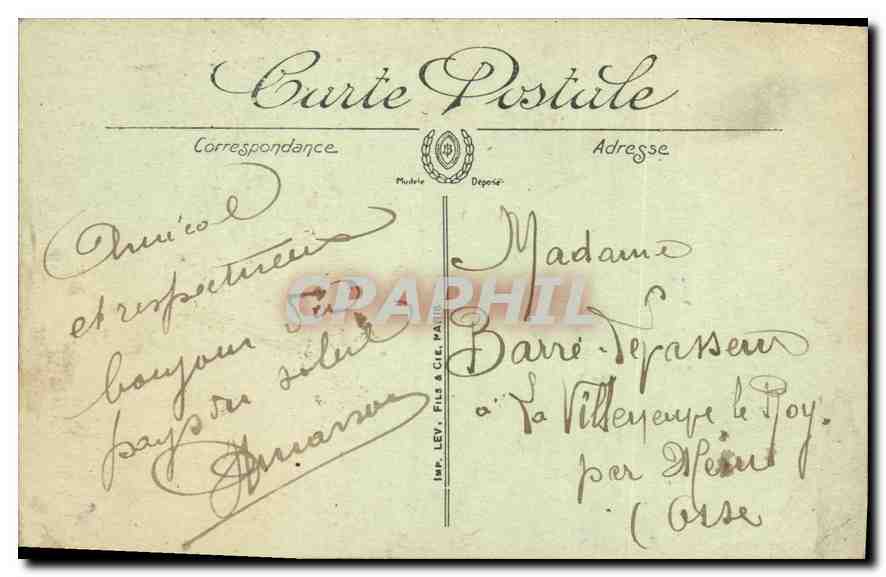 Carte Postale
Correspondance
Adresse
Modèle Déposé
Amical
et respectueux
bonjour du
pays du soleil
AMasson
IMP. LEV, FILS & CIE, PARIS
Madame
Barré-Levasseur
à La Villeneuve le Roy
par Méru
(Oise
CPAPHIL